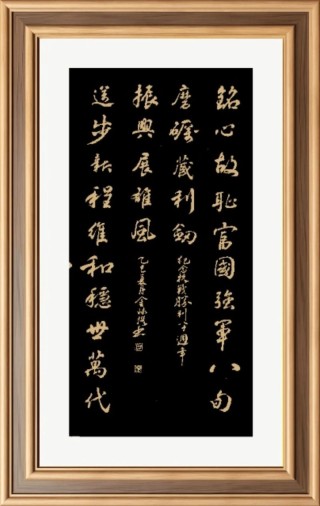 銘心故恥富國強軍八旬
磨礪藏利劍
紀念抗戰勝利八十週年
振興展雄風
乙巳夏月金林
步新程維和穩世萬代